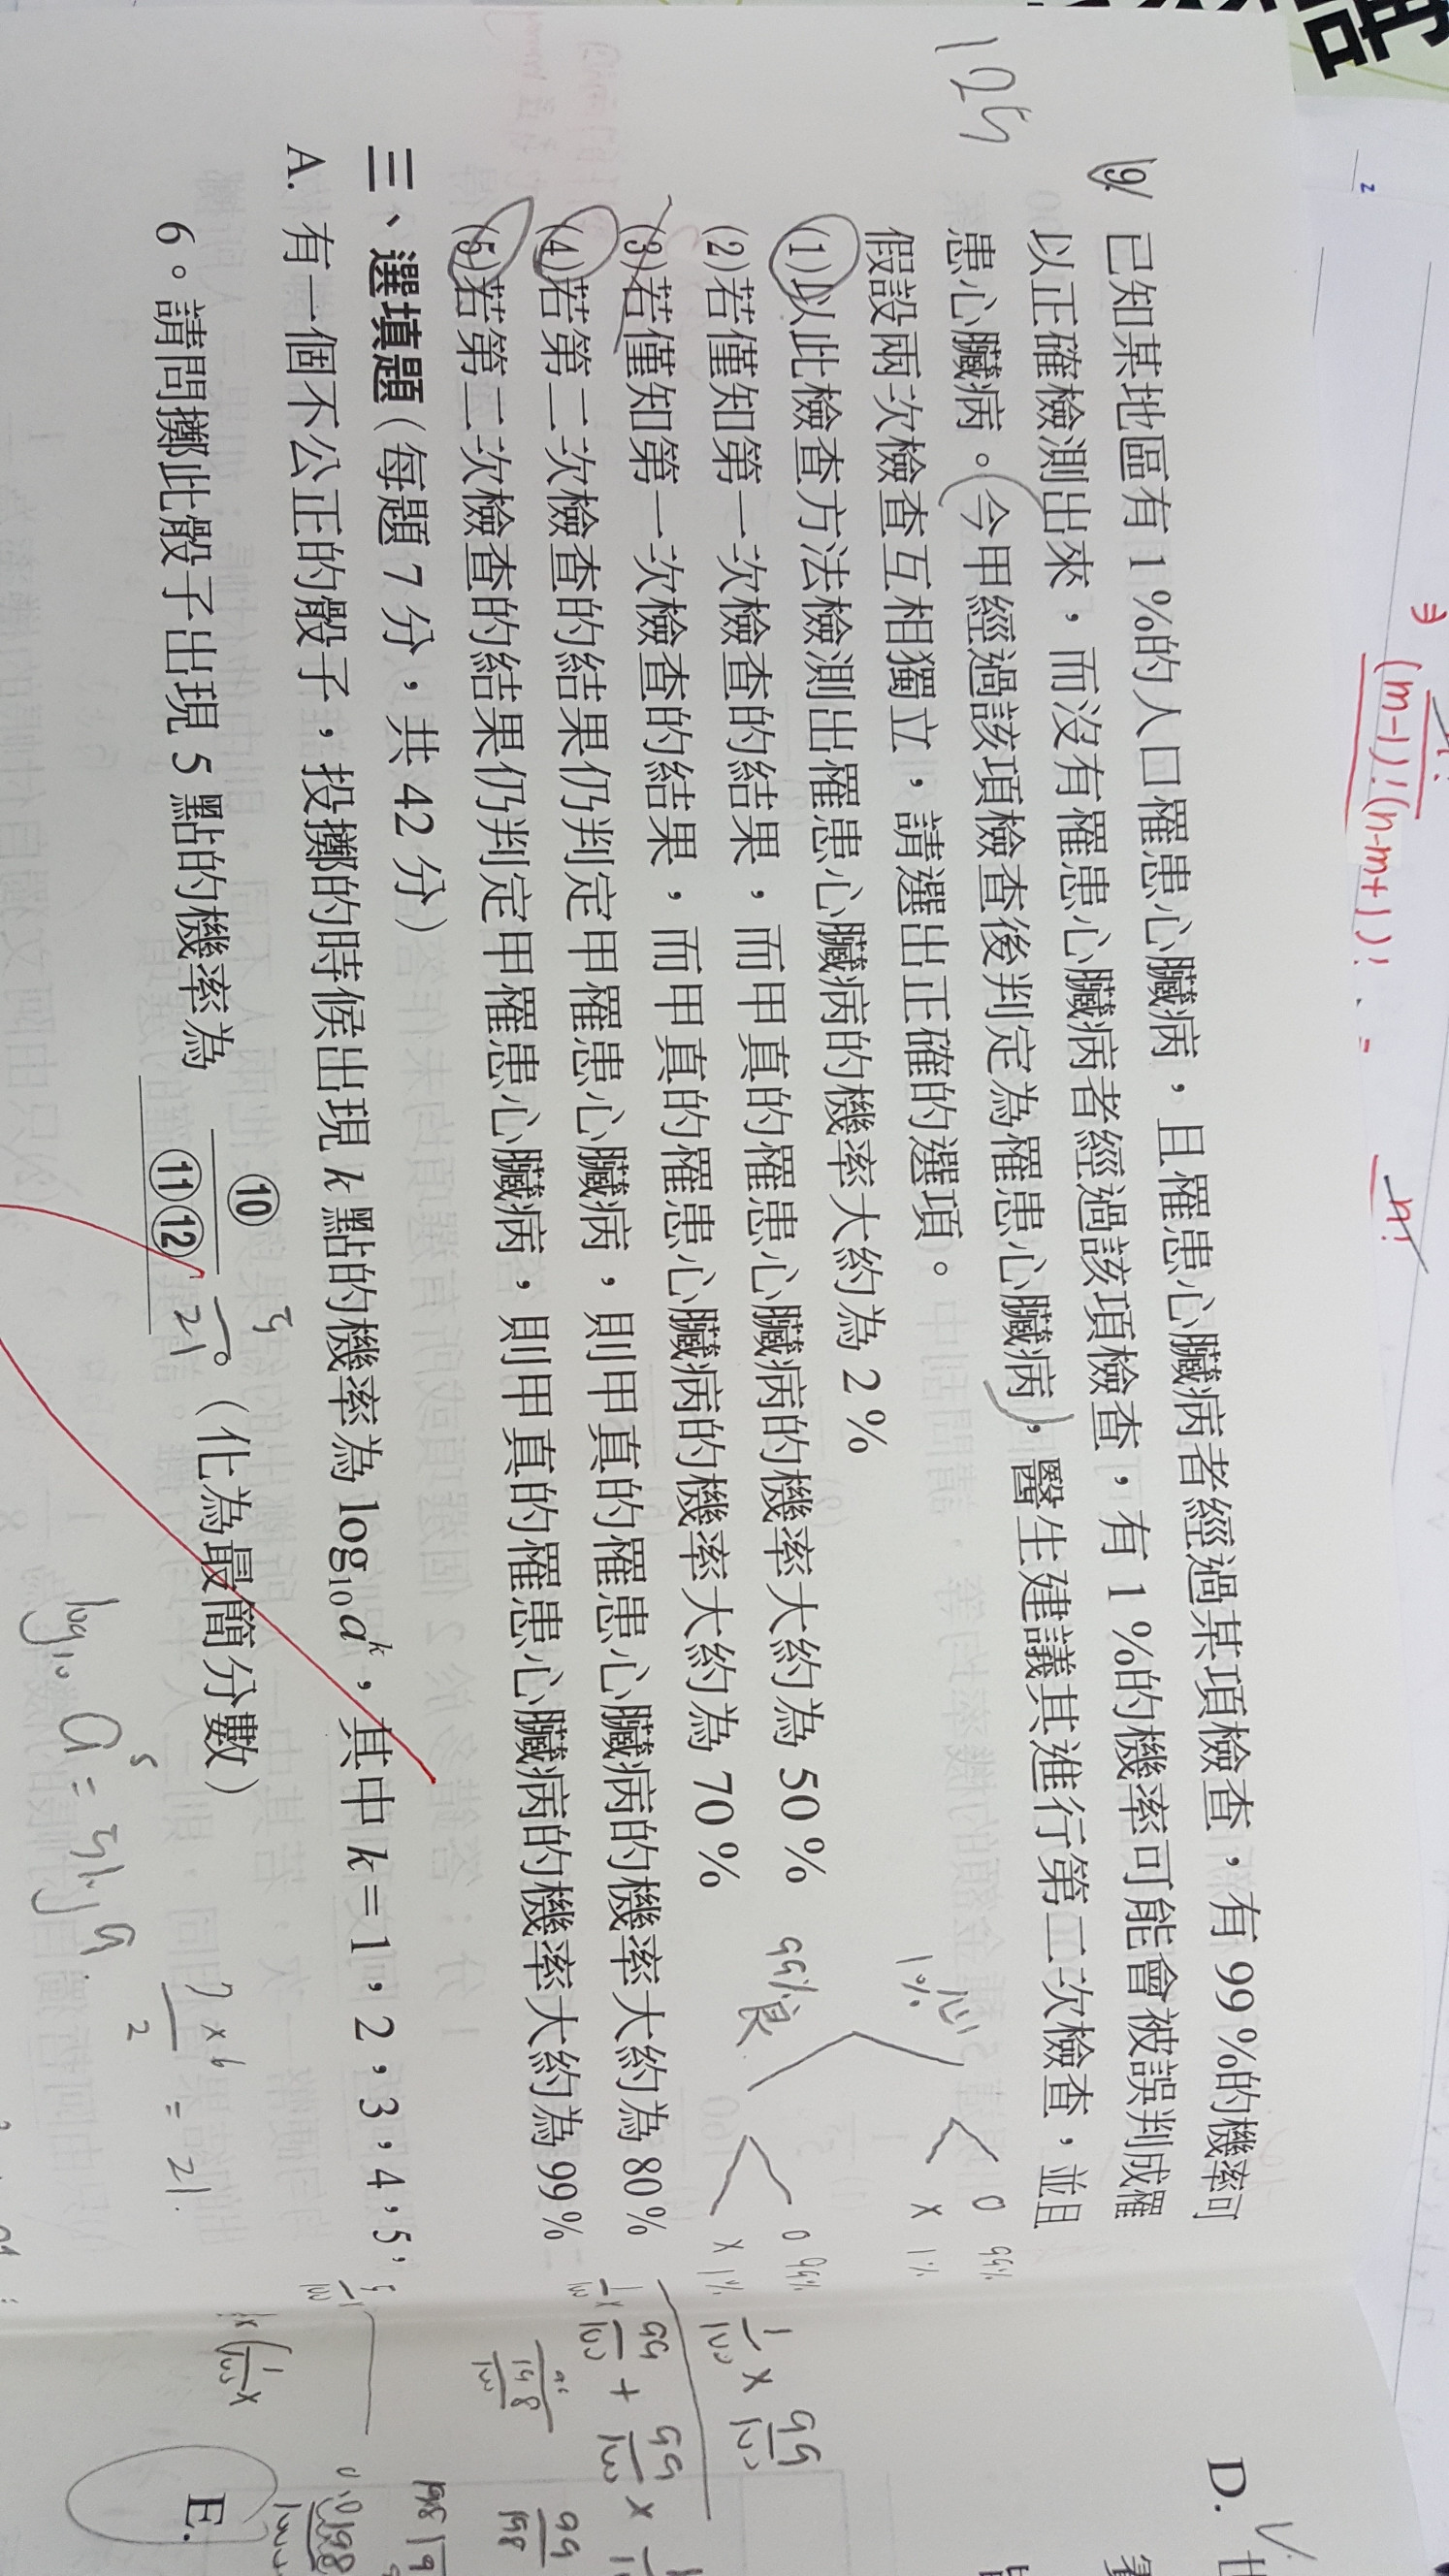 125
9. 已知某地區有 1 %的人口罹患心臟病，且罹患心臟病者經過某項檢查，有 99 %的機率可
以正確檢測出來，而沒有罹患心臟病者經過該項檢查，有 1 %的機率可能會被誤判成罹
患心臟病。今甲經過該項檢查後判定為罹患心臟病，醫生建議其進行第二次檢查，並且
假設兩次檢查互相獨立，請選出正確的選項。
(1)以此檢查方法檢測出罹患心臟病的機率大約為 2 %
(2)若僅知第一次檢查的結果，而甲真的罹患心臟病的機率大約為 50 %
(3)若僅知第一次檢查的結果，而甲真的罹患心臟病的機率大約為 70 %
(4)若第二次檢查的結果仍判定甲罹患心臟病，則甲真的罹患心臟病的機率大約為 80 %
(5)若第二次檢查的結果仍判定甲罹患心臟病，則甲真的罹患心臟病的機率大約為 99 %
三、選填題（每題 7 分，共 42 分）
A. 有一個不公正的骰子，投擲的時候出現 k 點的機率為 log₁₀aᵏ，其中 k＝1，2，3，4，5，
6。請問擲此骰子出現 5 點的機率為
⑩
⑪⑫
。（化為最簡分數）
5
21
log₁₀ a⁵ = 5log a
7×6
2
= 21.
1% 心
99% 良
O 99%
X 1%
O 99%
X 1%
(m-1)!(n-m+1)!
n!
D.
E.